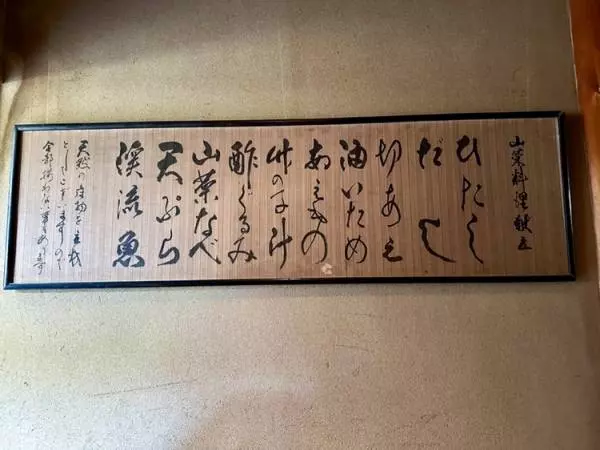 山菜料理献立
ひたし
だし
切あえ
油いため
あえもの
竹の子汁
酢ぐるみ
山菜なべ
天ぷら
渓流魚
天然の産物を主
としてございますので
全部揃わない事もあります